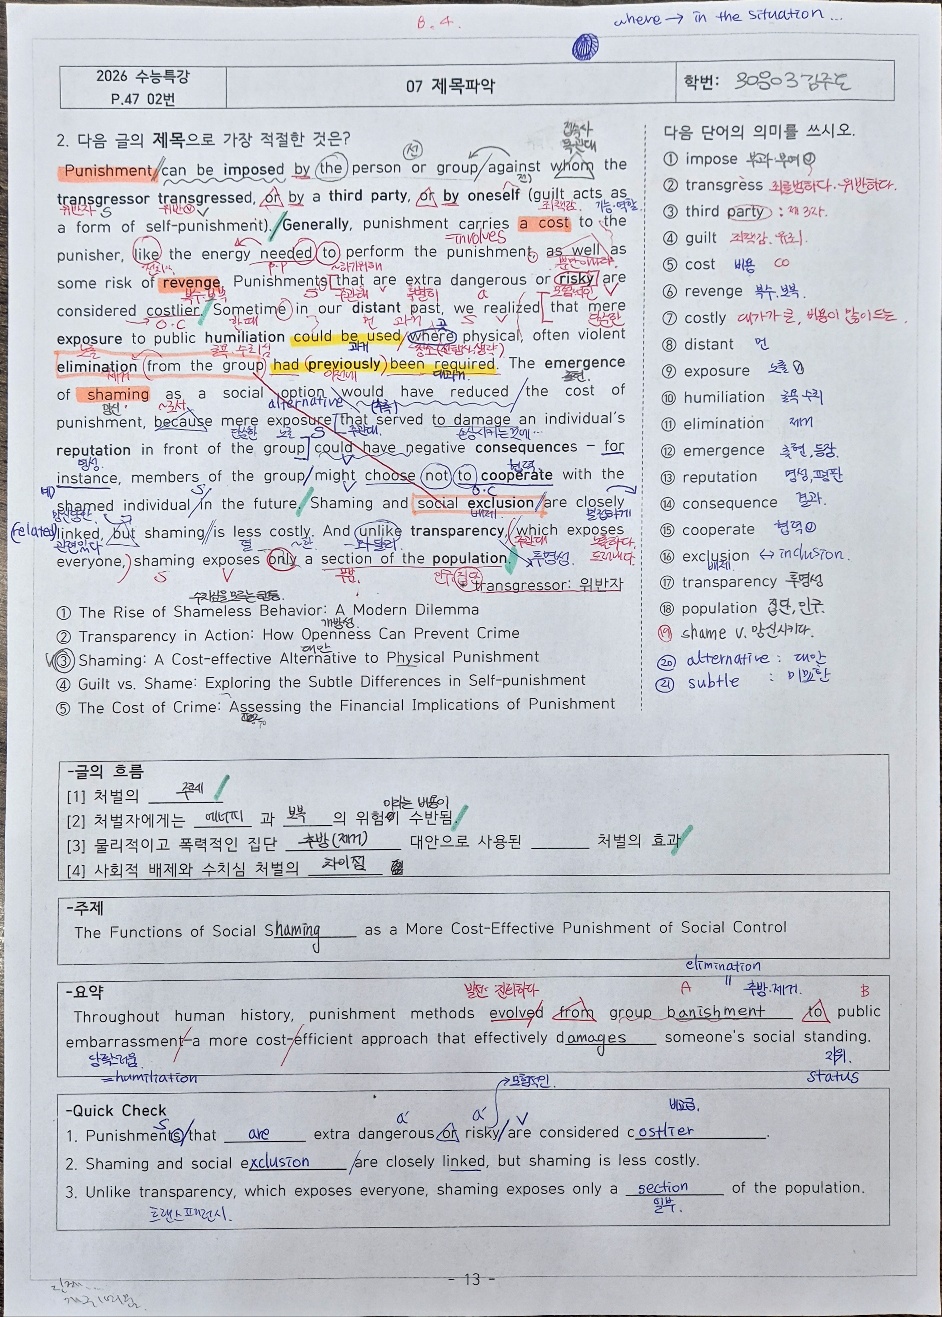 B. 4.
where → in the situation ...
2026 수능특강
P.47 02번
07 제목파악
학번:
2. 다음 글의 제목으로 가장 적절한 것은?
Punishment can be imposed by the person or group against whom the
transgressor transgressed, or by a third party, or by oneself (guilt acts as
위반자 S 위반 V 죄책감. 기능·역할
a form of self-punishment). Generally, punishment carries a cost to the
=involves
punisher, like the energy needed to perform the punishment, as well as
p.p ~하기위해
some risk of revenge. Punishments that are extra dangerous or risky are
복수·보복 S a V
considered costlier. Sometime in our distant past, we realized that mere
O·C 한때 먼 과거 S V 단순한
exposure to public humiliation could be used where physical, often violent
노출 굴욕·수치심 과거
elimination from the group had (previously) been required. The emergence
제거 이전에 대과거 출현.
of shaming as a social option would have reduced the cost of
망신. ~로서 alternative
punishment, because mere exposure that served to damage an individual's
단순한 노출 S 주관대.
reputation in front of the group could have negative consequences – for
명성 V
instance, members of the group might choose not to cooperate with the
S 협력
shamed individual in the future. Shaming and social exclusion are closely
O·C 배제 밀접하게
(related) linked, but shaming is less costly. And unlike transparency, which exposes
관련있다 덜 ~와 달리 주관대
everyone, shaming exposes only a section of the population. 투명성.
S V 부분. 인구(집단)
transgressor: 위반자
① The Rise of Shameless Behavior: A Modern Dilemma
개방성
② Transparency in Action: How Openness Can Prevent Crime
대안
③ Shaming: A Cost-effective Alternative to Physical Punishment
④ Guilt vs. Shame: Exploring the Subtle Differences in Self-punishment
⑤ The Cost of Crime: Assessing the Financial Implications of Punishment
다음 단어의 의미를 쓰시오.
① impose 부과·부여
② transgress 죄를범하다·위반하다.
③ third party : 제3자.
④ guilt 죄책감. 유죄.
⑤ cost 비용
⑥ revenge 복수.보복.
⑦ costly 대가가 큰, 비용이 많이 드는.
⑧ distant 먼
⑨ exposure 노출
⑩ humiliation 굴욕·수치
⑪ elimination 제거
⑫ emergence 출현,등장.
⑬ reputation 명성,평판
⑭ consequence 결과.
⑮ cooperate 협력
⑯ exclusion ↔ inclusion.
배제
⑰ transparency 투명성
⑱ population 집단, 인구.
⑲ shame v. 망신시키다.
⑳ alternative : 대안
㉑ subtle : 미묘한
-글의 흐름
[1] 처벌의 주체
이라는 비용이
[2] 처벌자에게는 에너지 과 보복 의 위험 수반됨.
[3] 물리적이고 폭력적인 집단 추방(제거) 대안으로 사용된 ______ 처벌의 효과
[4] 사회적 배제와 수치심 처벌의 차이점
-주제
The Functions of Social Shaming as a More Cost-Effective Punishment of Social Control
elimination
-요약
발전·진화하다 A " 추방·제거. B
Throughout human history, punishment methods evolved from group banishment to public
embarrassment–a more cost-efficient approach that effectively damages someone's social standing.
당혹스러움 지위.
=humiliation status
→모험적인
-Quick Check
S a' a' V 비교급.
1. Punishments that are extra dangerous or risky are considered costlier.
2. Shaming and social exclusion are closely linked, but shaming is less costly.
3. Unlike transparency, which exposes everyone, shaming exposes only a section of the population.
트랜스패런시. 일부.
- 13 -